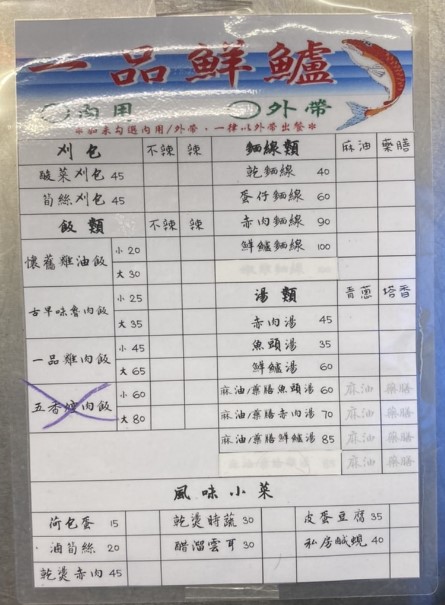 一品鮮鱸
內用 外帶
*如未勾選內用/外帶,一律以外帶出餐*
刈包 不辣 辣
酸菜刈包 45
筍絲刈包 45
飯類 不辣 辣
懷舊雞油飯 小 20
大 30
古早味魯肉飯 小 25
大 35
一品雞肉飯 小 45
大 65
五香爌肉飯 小 60
大 80
麵線類 麻油 藥膳
乾麵線 40
蛋仔麵線 60
赤肉麵線 90
鮮鱸麵線 100
湯類 青蔥 塔香
赤肉湯 45
魚頭湯 35
鮮鱸湯 60
麻油/藥膳魚頭湯 60 麻油 藥膳
麻油/藥膳赤肉湯 70 麻油 藥膳
麻油/藥膳鮮鱸湯 85 麻油 藥膳
麻油 藥膳
風味小菜
荷包蛋 15 乾燙時蔬 30 皮蛋豆腐 35
滷筍絲 20 醋溜雲耳 30 私房鹹蜆 40
乾燙赤肉 45